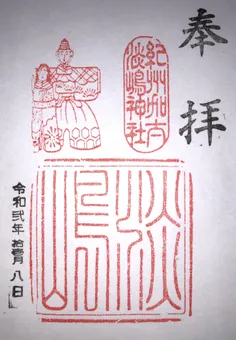 奉拝
紀州加太
淡嶋神社
淡嶋
令和弐年 拾壹月 八日